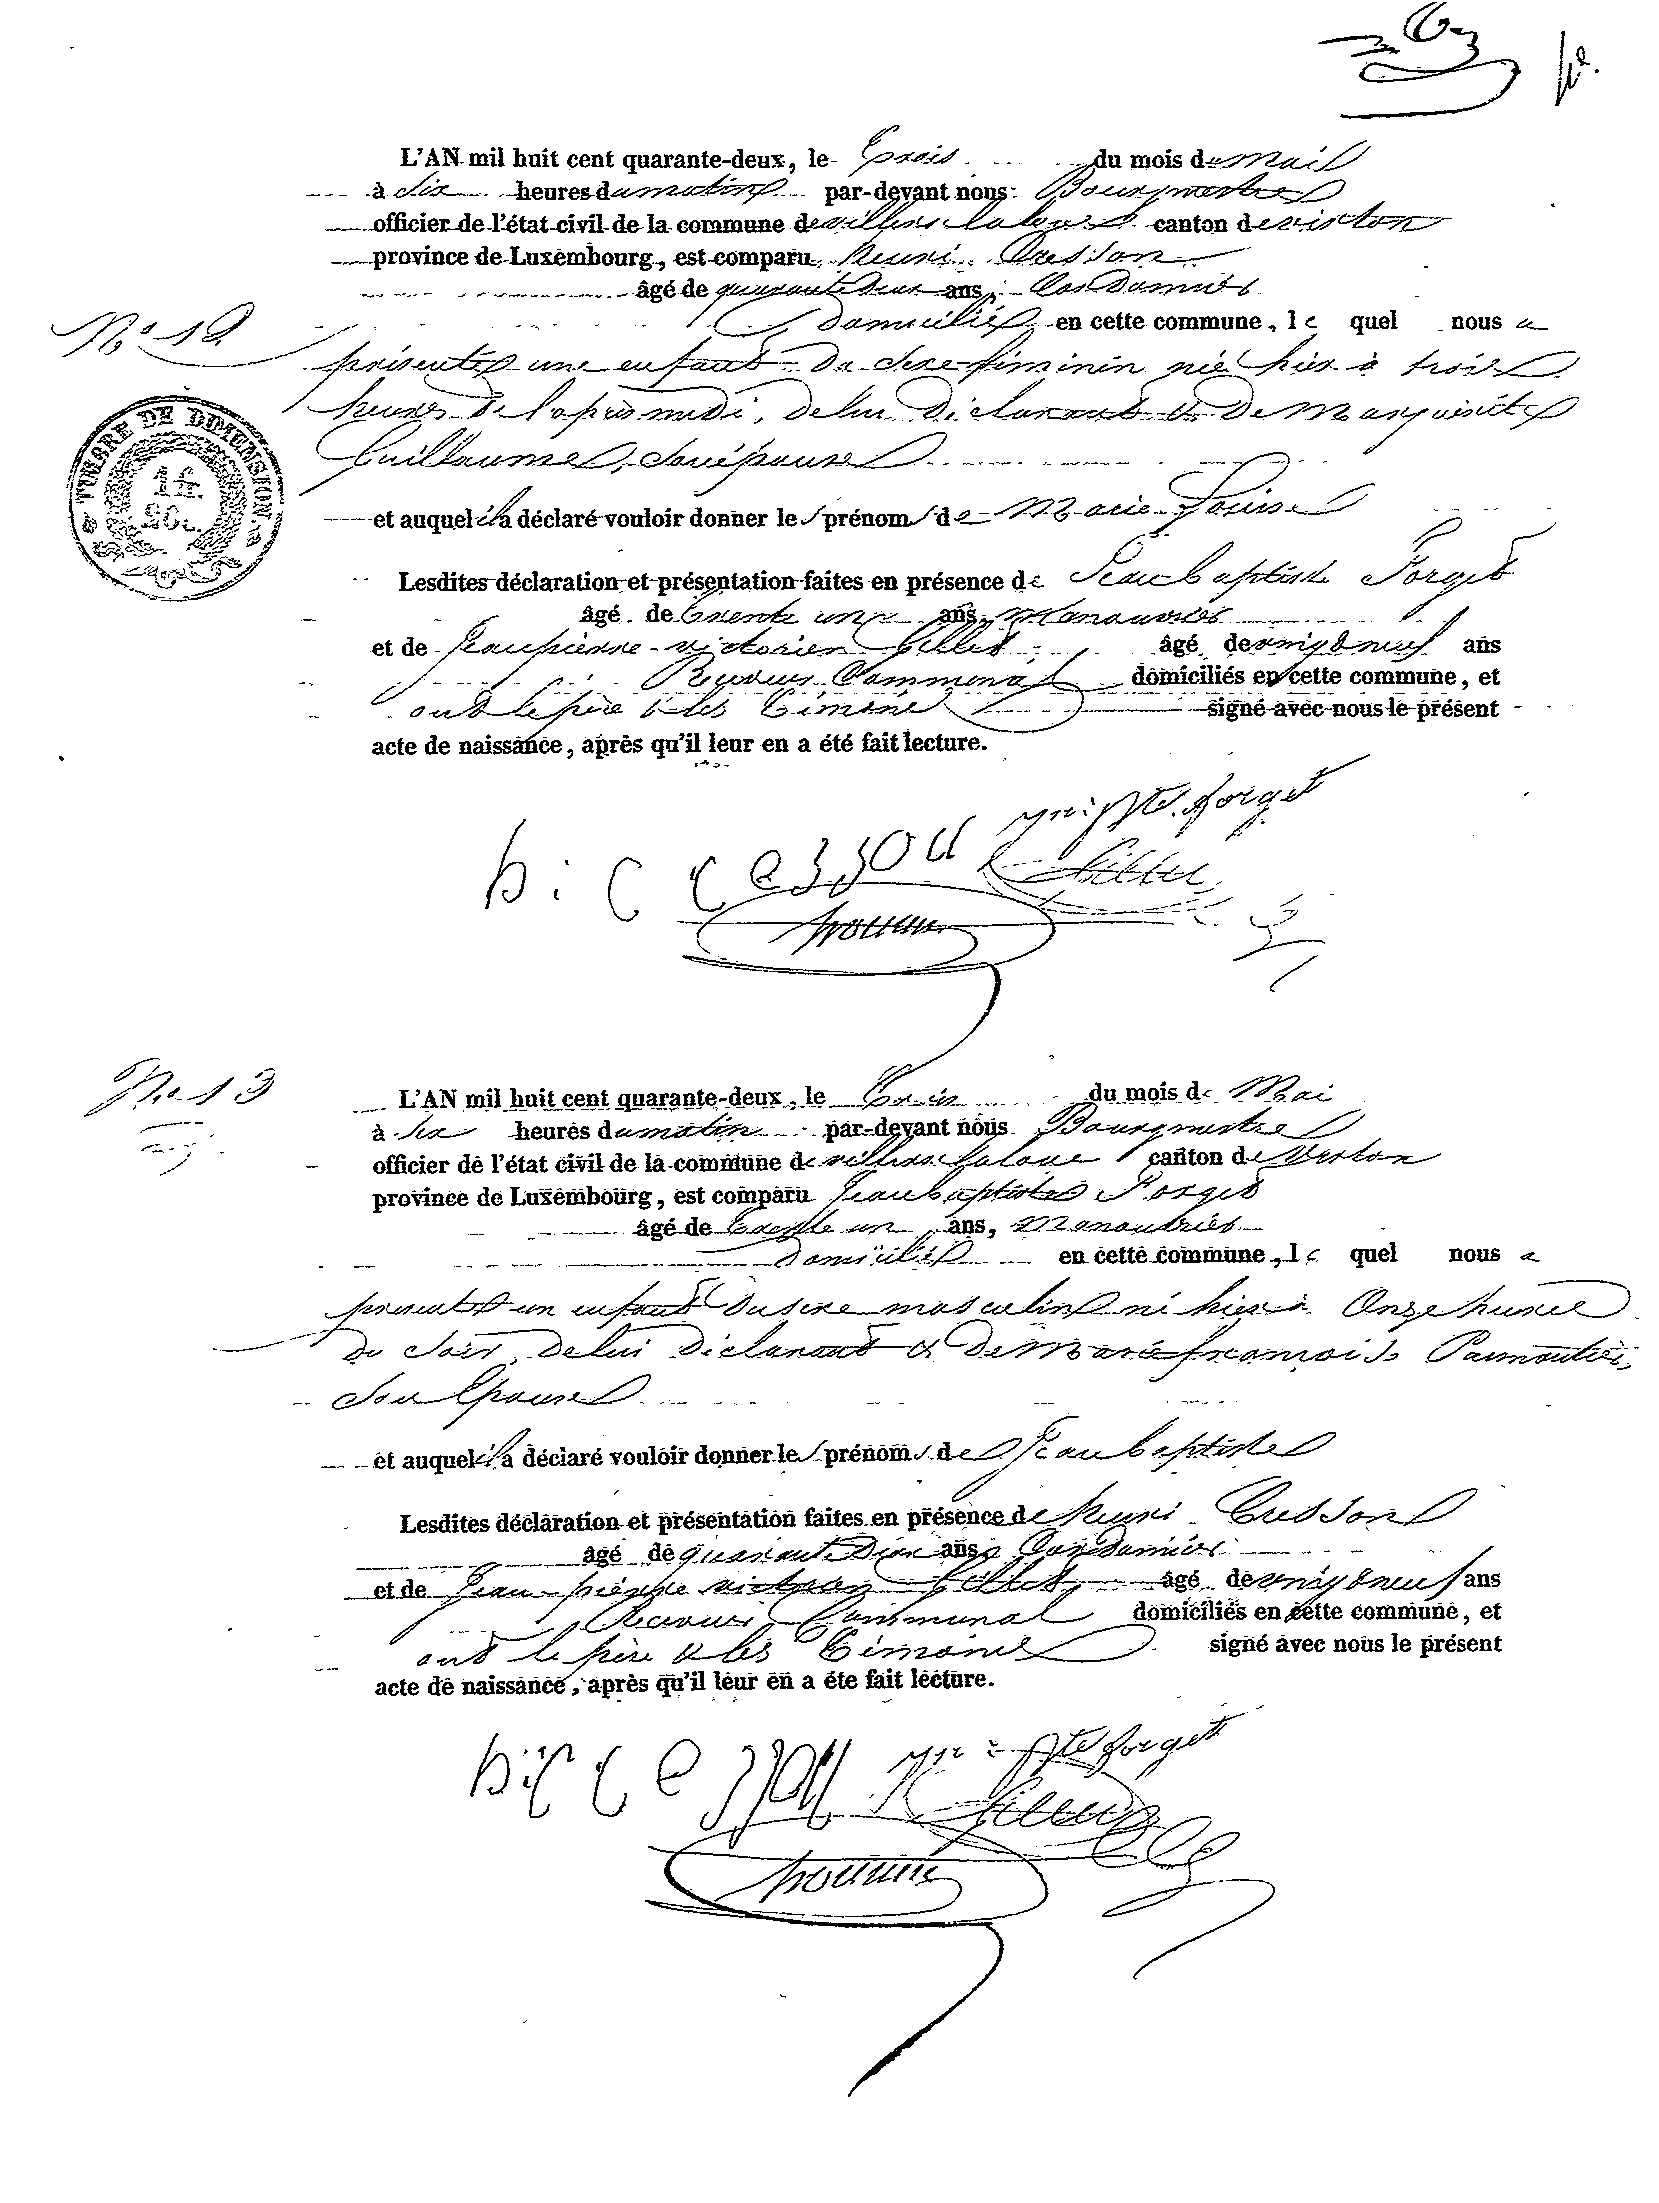 L'AN mil huit cent quarante-deux, le Trois du mois de mai
à Six heures du matin par-devant nous Bourgmestre
officier de l'état civil de la commune de villers la loue canton de virton
province de Luxembourg, est comparu henri Cresson
âgé de quarante deux ans, Cordonnier
domicilié en cette commune, le quel nous a
No 12
présenté une enfant du sexe féminin née hier à trois
heures de l'après midi, de lui déclarant & de Marguerite
Guillaume, son épouse
TIMBRE DE DIMENSION
et auquel il a déclaré vouloir donner les prénoms de Marie Louise
Lesdites déclaration et présentation faites en présence de Jean baptiste Forget
âgé de trente un ans, Manouvrier
et de Jean pierre victorien Gillet âgé de vingt neuf ans
Receveur Communal domiciliés en cette commune, et
ont le père & les témoins signé avec nous le présent
acte de naissance, après qu'il leur en a été fait lecture.
forget
No 13
L'AN mil huit cent quarante-deux, le Trois du mois de Mai
à Six heures du matin par-devant nous Bourgmestre
officier de l'état civil de la commune de villers la loue canton de Virton
province de Luxembourg, est comparu Jean baptiste Forget
âgé de trente un ans, Manouvrier
domicilié en cette commune, le quel nous a
présenté un enfant du sexe masculin né hier à Onze heures
du soir, de lui déclarant & de Marie françoise
son Epouse
et auquel il a déclaré vouloir donner les prénoms de Jean baptiste
Lesdites déclaration et présentation faites en présence de henri Cresson
âgé de quarante deux ans, Cordonnier
et de Jean pierre victorien Gillet, âgé de vingt neuf ans
Receveur Communal domiciliés en cette commune, et
ont le père & les témoins signé avec nous le présent
acte de naissance, après qu'il leur en a été fait lecture.
forget